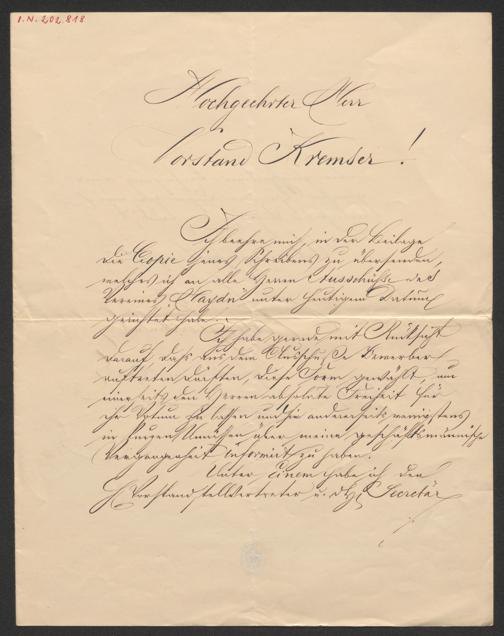 I.N. 202.818
Hochgeehrter Herr
Vorstand Kremser!
Ich beehre mich, in der Beilage
die Copie jenes Schreibens zu übersenden,
welches ich an alle Herren Ausschüsse des
Vereines „Haydn" unter heutigem Datum
gerichtet habe.
Ich habe gerade mit Rücksicht
darauf, dass aus dem Ausschuße Bewerber
auftreten dürften, diese Form gewählt, um
einerseits den Herren absolute Freiheit für
ihr Votum zu lassen und Sie andererseits wenigstens
in kurzen Umrissen über meine geschäftsmännische
Vergangenheit informirt zu haben.
Unter einem habe ich den
H. Vorstandstellvertreter u. dH. Secretär